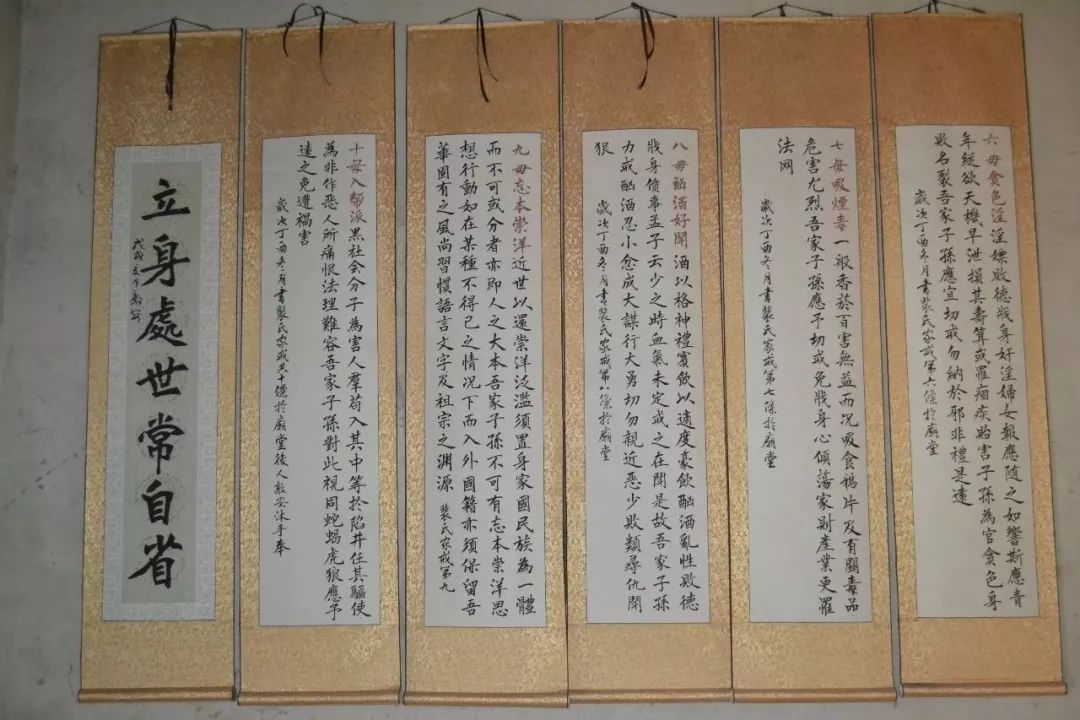 六毋貪色淫淫嫖敗德戕身奸淫婦女報應隨之如響斯應青
年縱欲天機早泄損其壽算或罹痼疾貽害子孫為官貪色身
敗名裂吾家子孫應宜切戒勿納於邪非禮是遠
歲次丁酉冬月書裴氏家戒第六條於廟堂
七毋吸煙毒一般香菸百害無益而況吸食鴉片及有關毒品
危害尤烈吾家子孫應予切戒免戕身心傾蕩家財產業更罹
法网
歲次丁酉冬月書裴氏家戒第七條於廟堂
八毋酗酒好鬧酒以格神禮賓飲以適度豪飲酗酒亂性敗德
戕身僨事孟子云少之時血氣未定戒之在鬪是故吾家子孫
力戒酗酒忍小忿成大謀行大勇切勿親近惡少敗類尋仇鬪
狠
歲次丁酉冬月書裴氏家戒第八條於廟堂
九毋忘本崇洋近世以還崇洋泛濫須置身家國民族為一體
而不可或分者亦即人之大本吾家子孫不可有忘本崇洋思
想行動如在某種不得已之情況下而入外國籍亦須保留吾
華固有之風尚習慣語言文字及祖宗之淵源
裴氏家戒第九
十毋入幫派黑社会分子為害人羣苟入其中等於陷井任其驅使
為非作惡人所痛恨法理難容吾家子孫對此視同蛇蝎虎狼應予
遠之免遭禍害
歲次丁酉冬月書裴氏家戒共十條於廟堂後人敦安沐手奉
立身處世常自省
戊戌